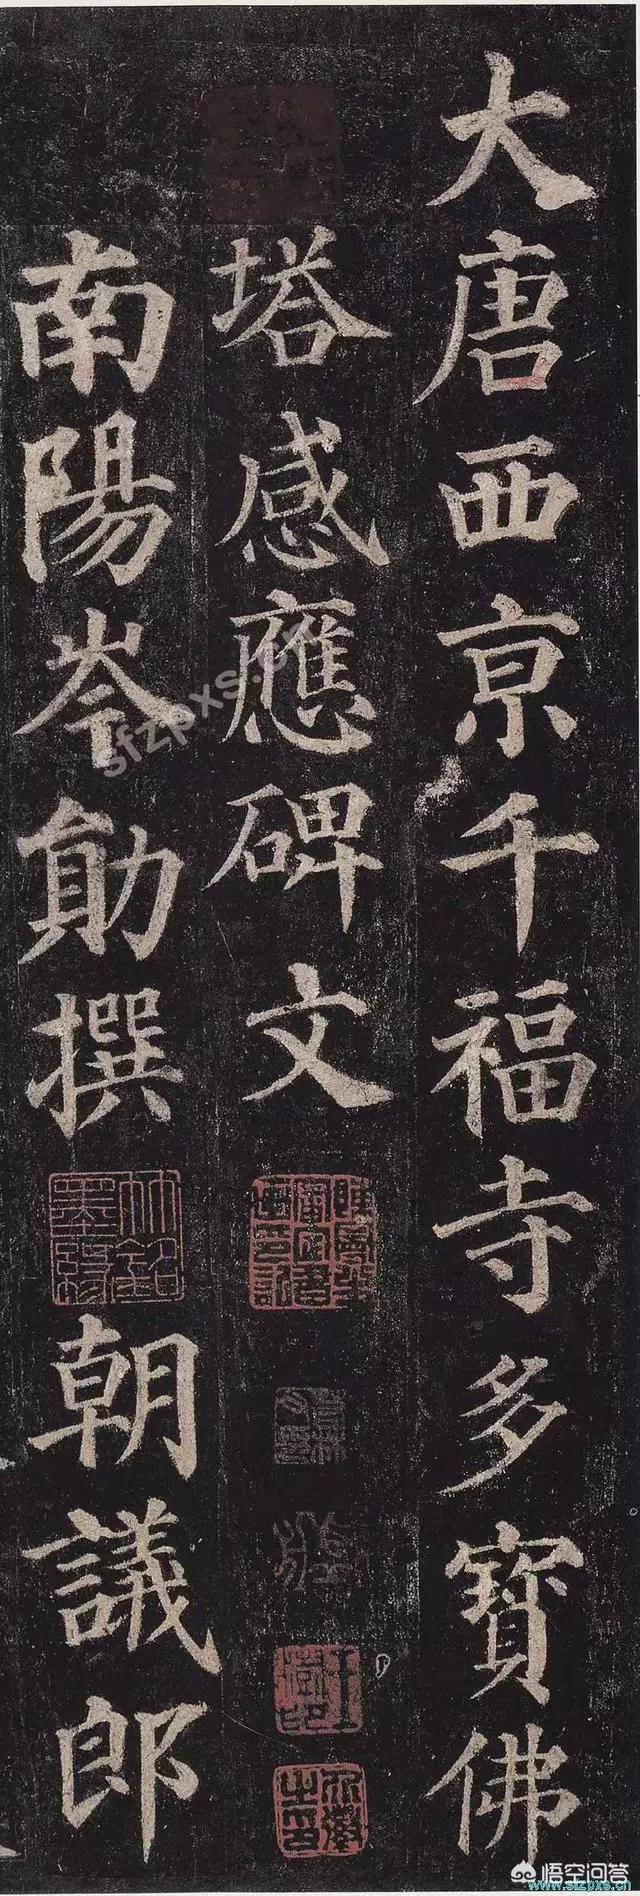 大唐西京千福寺多寶佛
塔感應碑文
南陽岑勛撰
朝議郎
sfzpxs.cn
悟空问答
www.sfzpxs.cn